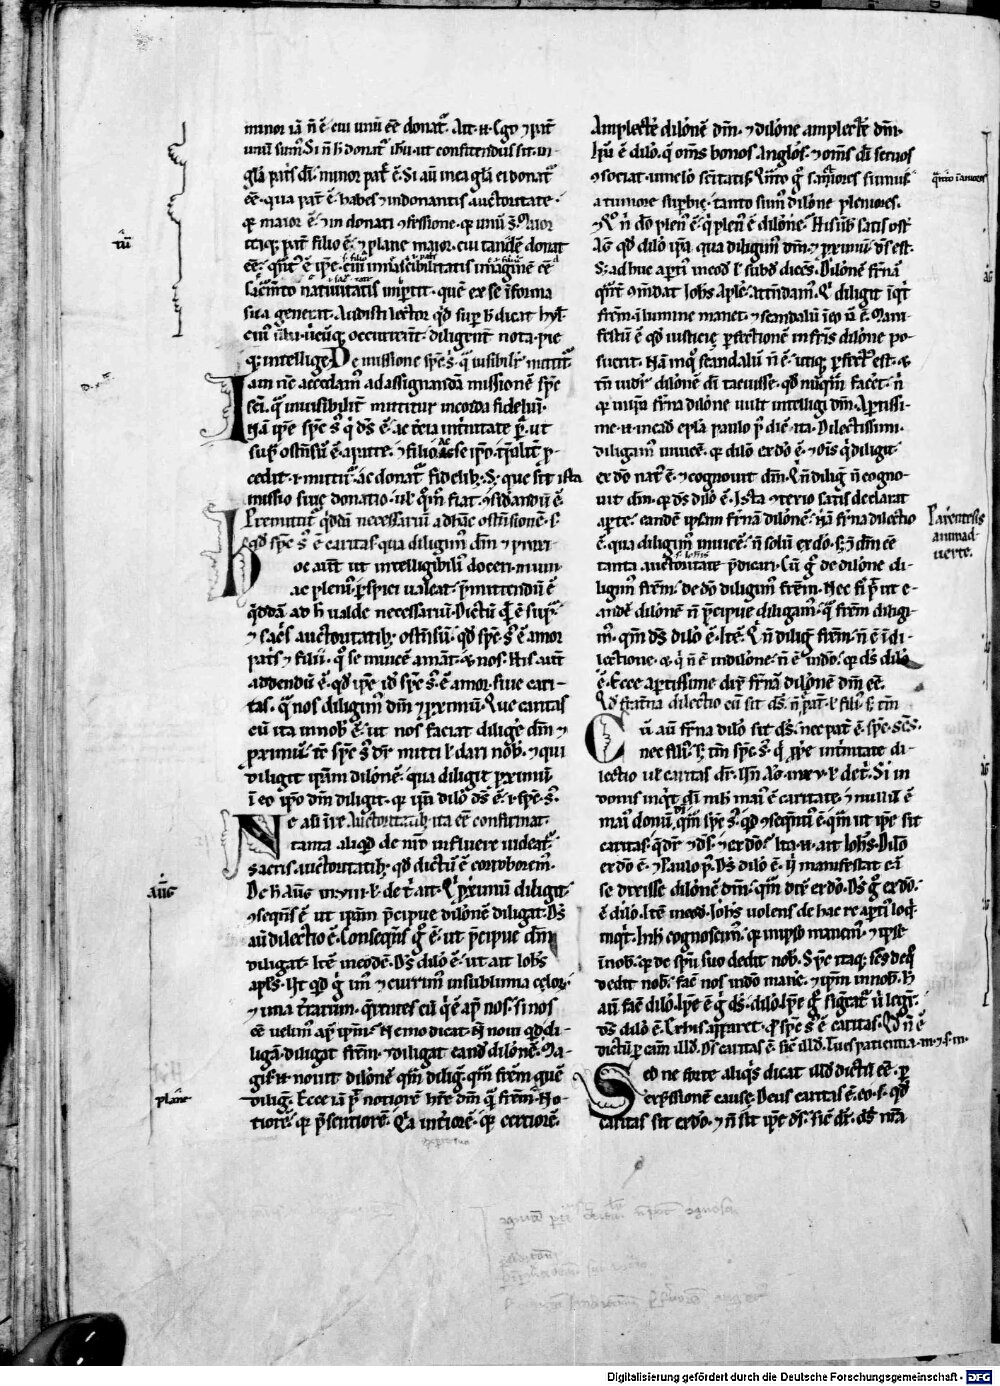 minor iā n̄ ē cui unū eē donat᷒. Ait .n. Ego ⁊ pat̄
unū sum᷒. Si n̄ h̄ donat᷒ ih̄u. ut confitendus sit. in
gl̄a pat̄s dī. minor pat̄ ē. Si aū in ea gl̄a ei donat᷒
eē. qua pat̄ ē. habes ⁊ in donantis auctoritate.
qr maior ē. ⁊ in donati ꝯfessione. qr unū s̄t. Maior
itaq; pat̄ filio ē. ⁊ plane maior. cui tantū donat
eē. q̄nt᷒ ē ip̄e. cui innascibilitatis imaginē eē
sacͣmto natiuitatis imp̄tit. quē ex se in forma
sua generat. Audisti lector qd̄ sup̄ h̄ dicat hyl̄.
cui᷒ ūba. ubicūq; occurrerint. diligent̄ nota. pie
q; intellige. De missione sp̄c s̄. q̄ inuisibilit̄ mittit᷒
Iam nc̄ accedam᷒ ad assignandā missionē sp̄c
sc̄i. q̄ inuisibilit̄ mittitur in corda fideliū.
Nā ip̄e sp̄c s̄ q̄ d̄s ē. ac tc̄ia in t̄nitate p̄. ut
sup̄ ostn̄sū ē. a patre. ⁊ filio. ac se ip̄o tp̄alit̄ p̄
cedit. i. mittit᷒ ac donat᷒ fidelib; S; que sit ista
missio siue donatio. ul̄ q̄m fiat. ꝯsidandū ē.
Premittit q̄ddā necessariū ad hāc ostn̄sionē. s.
qd̄ sp̄c s̄ ē caritas. qua diligim᷒ dm̄ ⁊ p̄xim̄
Hoc aut̄ ut intelligibili᷒ doceri. mun
ac pleni᷒. p̄spici ualeat. p̄mittendū ē
q̄ddā ad h̄ ualde necessariū. Dictū q̄ ē sup᷒.
⁊ sac̄s auctoritatib; ostn̄sū. qd̄ sp̄c s̄ ē amor
pat̄s ⁊ filii. q᷒ se inuicē amāt. ⁊ nos. His aut̄
addendū ē. qd̄ ip̄e id̄ sp̄c s̄. ē amor. siue cari-
tas. q̄ nos diligim᷒ dm̄ ⁊ p̄ximū. Que caritas
cū ita in nob̄ ē. ut nos faciat diligē dm̄ ⁊
p̄ximū. tc̄ sp̄c s̄ d̄r mitti l̄ dari nob̄. ⁊ qui
diligit ip̄am dil̄onē. qua diligit p̄ximū
ī eo ip̄o dm̄ diligit. qr ip̄a dil̄o d̄s ē. i. sp̄c s̄.
Ne aū ī re. Auctoritatib; ita eē confirmat.
tanta aliqd̄ de nr̄o influere uideat᷒
sacris auctoritatib; qd̄ dictū ē corroborem᷒.
De h̄ Auḡ. in .viii. l̄. de t̄. ait. Q̄ p̄ximū diligit.
ꝯseqn̄s ē ut ip̄am p̄cipue dil̄onē diligat. D̄s
aū dilectio ē. Conseqn̄s g᷒ ē. ut p̄cipue dm̄
diligat. Itē in eodē. D̄s dil̄o ē. ut ait Ioh̄s
apl̄s. Ut qd̄ g᷒ im᷒ ⁊ currim᷒ in sublimia celor̄.
⁊ ima t̄rarum. q̄rentes eū q̄ ē ap̄ nos. si nos
eē uelim᷒ ap̄ ip̄m. Nemo dicat. n̄ noui qd̄ di-
ligā. diligat fr̄em. ⁊ diligat eand̄ dil̄onē. Ma-
gis .n. nouit dil̄onē q̄m diliḡ. q̄m fr̄em quē
diliḡ. Ecce iā p̄t notiorē h̄re dm̄ q̄ fr̄em. No-
tiorē. qr p̄sentiorē. Q̄a int̄iorē. qr certiorē.
Amplectē dil̄onē dm̄. ⁊ dil̄one amplectē dm̄.
Ip̄a ē dil̄o. q̄ om̄s bonos angl̄os. ⁊ om̄s dī seruos
ꝯsociat uinc̄lo sc̄itatis. Q̄nto g᷒ saniores sumus
a tumore supbię. tanto sum᷒ dil̄one pleniores.
⁊ q᷒ n̄ dō plen᷒ ē. q̄ plen᷒ ē dil̄one. His ūb̄ satis ost̄
Auḡ qd̄ dil̄o ip̄a. qua diligim᷒ dm̄ ⁊ p̄ximū. d̄s est.
S; adhuc ap̄ti᷒ in eod̄ l̄. subd̄ dicēs. Dil̄onē fr̄nā
q̄nt̄ ꝯmdat Ioh̄s apl̄s. attn̄dam᷒. Q̄ diligit inq̄t
fr̄em. ī lumine manet. ⁊ scandalū ī eo n̄ ē. Mani-
festū ē qd̄ iusticię p̄fectionē in fr̄is dil̄one po-
suerit. Nā inq̄ scandalū n̄ ē. utiq; p̄fect᷒ est. ⁊
tn̄ uidr̄ dil̄onē dī tacuisse. qd̄ nūq̄m facēt. n̄
qr in ip̄a fr̄na dil̄one uult intelligi dm̄. Aptissi-
me .n. in ead̄ epl̄a paulo p᷒ dic̄ ita. Dilectissimi
diligam᷒ inuicē. qr dil̄o ex dō ē. ⁊ om̄s q̄ diligit
ex dō nat᷒ ē. ⁊ cognouit dm̄. Q̄ n̄ diliḡ n̄ cogno-
uit dm̄. qr d̄s dil̄o ē. Ista ꝯtextio satis declarat
apte. eandē ip̄sam fr̄nā dil̄onē. nā fr̄na dilectio
ē. qua diligim᷒ inuicē. n̄ solū ex dō. s; ⁊ dm̄ eē
tanta auctoritate p̄dicari. Cū g᷒ de dil̄one di-
ligim᷒ fr̄em. de dō diligim᷒ fr̄em. Nec fi p̄t ut e-
andē dil̄onē n̄ p̄cipue diligam᷒. q̄ fr̄em diligi-
m᷒. q̄m d̄s dil̄o ē. Itē. Q̄ n̄ diliḡ fr̄em. n̄ ē ī di-
lectione. ⁊ q̄ n̄ ē in dil̄one. n̄ ē in dō. qr d̄s dil̄o
ē. Ecce aptissime dix̄ fr̄nā dil̄onē dm̄ eē.
Qd̄ fratna dilectio cū sit d̄s. n̄ pat̄. l̄ fili᷒. s; tm̄
Cū aū fr̄na dil̄o sit d̄s. nec pat̄ ē. sp̄c sc̄s.
nec fili᷒. s; tm̄ sp̄c s̄. q̄ p̄pe in t̄nitate di-
lectio ul̄ caritas d̄r. Un̄ Auḡ. in xv. l̄. de t̄. Si in
donis inq̄t dī nich̄ mai᷒ ē caritate. ⁊ nullū ē
mai᷒ donū dī q̄m sp̄c s̄. qd̄ ꝯseq̄nti᷒ ē. q̄m ut ip̄e sit
caritas. q̄ d̄r ⁊ d̄s. ⁊ ex dō. Ita .n. ait Ioh̄s. Dil̄o
ex dō ē. ⁊ Paulo p᷒. D̄s dil̄o ē. ubi manifestat eā
se dixisse dil̄onē dm̄. q̄m dix̄ ex dō. D̄s g᷒ ex dō.
ē dil̄o. Itē in eod̄. Ioh̄s uolens de hac re apti᷒ loq̄.
inq̄t. In h̄ cognoscim᷒. qr in ip̄o manem᷒. ⁊ ip̄e
in nob̄. qr de sp̄u suo dedit nob̄. Sp̄c itaq; sc̄s de q᷒
dedit nob̄. fac̄ nos in dō manē. ⁊ ip̄m in nob̄. h̄
aū fac̄ dil̄o. Ip̄e ē g᷒ d̄s. dil̄o. Ip̄e g᷒ sig̅tat᷒ ubi legit̄.
D̄s dil̄o ē. Ex his apparet. q̄ sp̄c s̄ ē caritas. Qd̄ n̄ ē
dictū p̄ cām illd̄. D̄s caritas ē. sic ē illd̄. Tu es patientia .m. ⁊ s. m.
Sed ne forte aliq̄s dicat illd̄ dictū eē. p̄
expssionē causę. Deus caritas ē. eo .s. qd̄
caritas sit ex dō. ⁊ n̄ sit ip̄e d̄s. sic d̄r. d̄s nr̄a
Auḡ
plane
Parentesis
animad-
uerte.
Digitalisierung gefördert durch die Deutsche Forschungsgemeinschaft - DFG